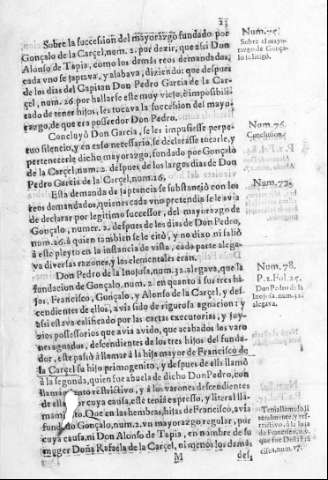 23
Sobre la succession del mayorazgo fundado por
Gonçalo de la Carçel, num. 2. por dezir, que assi Don
Alonso de Tapia, como los demàs reos demandados,
cada vno se jataua, y alabaua, diziendo: que despues
de los dias del Capitan Don Pedro Garcia de la Car-
çel, num. 26. por hallarse este muy viejo, è impossibili-
tado de tener hijos, les tocava la succession del mayo-
razgo, de que era possedor Don Pedro.
Concluyò Don Garcia, se les impusiesse perpe-
tuo silencio, y en caso necessario, se declarasse tocarle, y
pertenecerle dicho mayorazgo, fundado por Gonçalo
de la Carçel, num. 2. despues de los largos dias de Don
Pedro Garcia de la Carçel, num. 26.
Esta demanda de jactancia se substanciò con los
reos demandados, quienes cada vno pretendia se le auia
de declarar por legitimo successor, del mayorazgo de
Gonçalo, numer. 2. despues de los dias de Don Pedro,
num. 26. à quien tambien se le citò, y no dixo ni saliò
à este pleyto en la instancia de vista, cada parte alega-
va diversas razones, y los elementales eràn.
Don Pedro de la Inojosa, num. 32. alegava, que la
fundacion de Gonçalo, num. 2. en quanto à sus tres hi-
jos, Francisco, Gonçalo, y Alonso de la Carçel, y des-
cendientes de ellos, avia sido de rigurosa agnacion; y
assi estava calificado por las cartas executorias, y juy-
zios possessorios que avia avido, que acabados los varo-
nes agnados, descendientes de los tres hijos del funda-
dor, este passò à llamar à la hija mayor de Francisco de
la Carçel su hijo primogenito, y despues de ella llamò
à la segunda, quien fue abuela de dicho Don Pedro, con
llamamiento restrictivo, y à los varones descendientes
de ella por cuya causa, este tenia expresso, y literal lla-
mamiento. Que en las hembras, hijas de Francisco, avia
fundado Gonçalo, num. 2. vn mayorazgo regular, por
cuya causa, ni Don Alonso de Tapia, en nombre de su
muger Doña Rafaela de la Carçel, ni menos los demàs
M
des,
Num. 75.
Sobre el mayo-
razgo de Gonça-
lo
Num. 76.
Conclusion.
Num. 77.
Num. 78.
P. 2. Fol. 25.
Don Pedro de la
Inojosa, num. 32.
alegava.